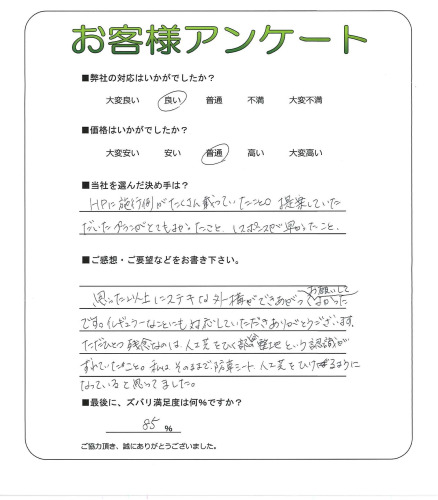 お客様アンケート
■弊社の対応はいかがでしたか?
大変良い 良い 普通 不満 大変不満
■価格はいかがでしたか?
大変安い 安い 普通 高い 大変高い
■当社を選んだ決め手は?
HPに施行例がたくさん載っていたこと。提案していた
だいたプランがとてもよかったこと、レスポンスが早かったこと。
■ご感想・ご要望などをお書き下さい。
お願いして
思った以上にステキな外構ができあがってよかった
です。イレギュラーなことにも対応していただきありがとうございます。
ただひとつ残念なのは、人工芝をひく部分の整地という認識が
ずれていたこと。私はそのままで防草シート、人工芝をひけるように
なっていると思ってました。
■最後に、ズバリ満足度は何%ですか?
85 %
ご協力頂き、誠にありがとうございました。